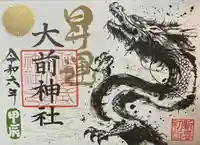 昇運
大前神社
令和六年
甲辰